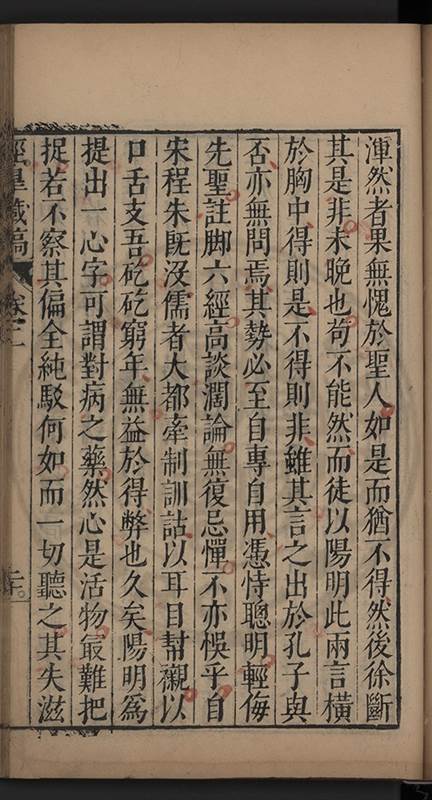 渾然者果無愧於聖人如是而猶不得然後徐斷
其是非未晚也苟不能然而徒以陽明此兩言橫
於胸中得則是不得則非雖其言之出於孔子與
否亦無問焉其勢必至自專自用憑恃聰明輕侮
先聖註脚六經高談濶論無復忌憚不亦悞乎自
宋程朱既沒儒者大都牽制訓詁以耳目幫襯以
口舌支吾矻矻窮年無益於得弊也久矣陽明爲
提出一心字可謂對病之藥然心是活物最難把
捉若不察其偏全純駁何如而一切聽之其失滋
經臯藏稿
卷二